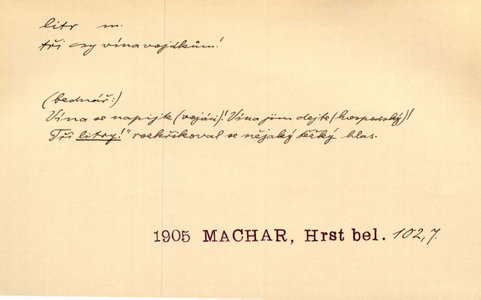 litr m.
tři osy vína vojákům!
(bednář:)
Vína se napijte (vojáci)! Vína jim dejte (hospodský)!
Tři litry!" rozkřikoval se nějaký těžký hlas.
1905 MACHAR, Hrst bel. 102,7.